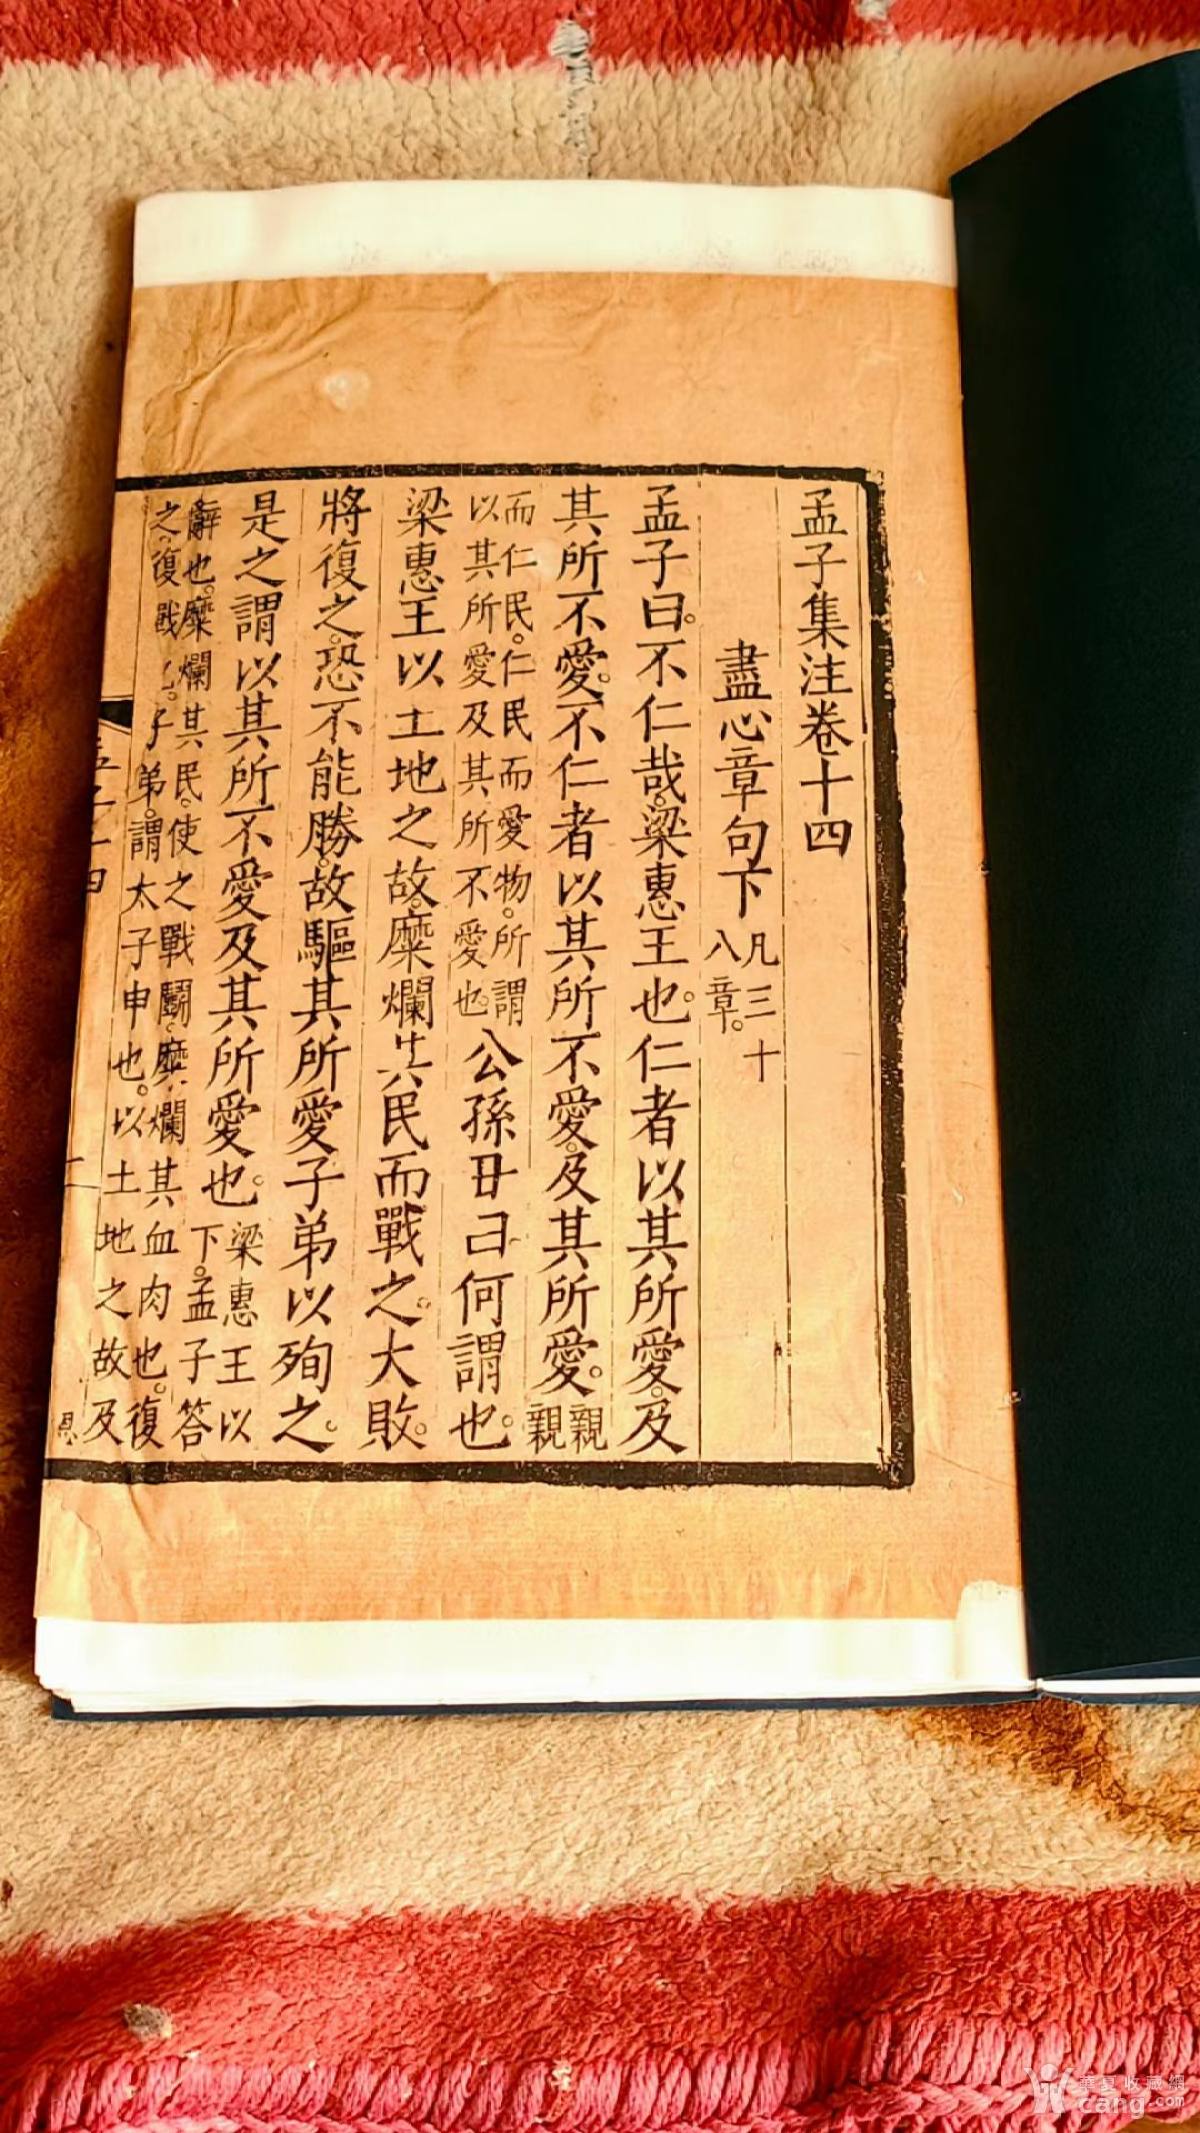 孟子集注卷十四
盡心章句下 凡三十
八章。
孟子曰。不仁哉。梁惠王也。仁者以其所愛。及
其所不愛。不仁者以其所不愛。及其所愛。親親
而仁民。仁民而愛物。所謂
以其所愛及其所不愛也。公孫丑曰何謂也。
梁惠王以土地之故。糜爛其民而戰之。大敗。
將復之。恐不能勝。故驅其所愛子弟以殉之。
是之謂以其所不愛及其所愛也。梁惠王以
下。孟子答
辭也。糜爛其民。使之戰鬬。糜爛其血肉也。復
之。復戰也。子弟。謂太子申也。以土地之故及
華夏收藏網
cang.com